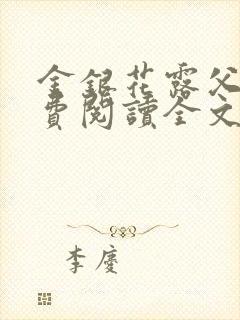 金銀花露父
費閱讀全文
李慶